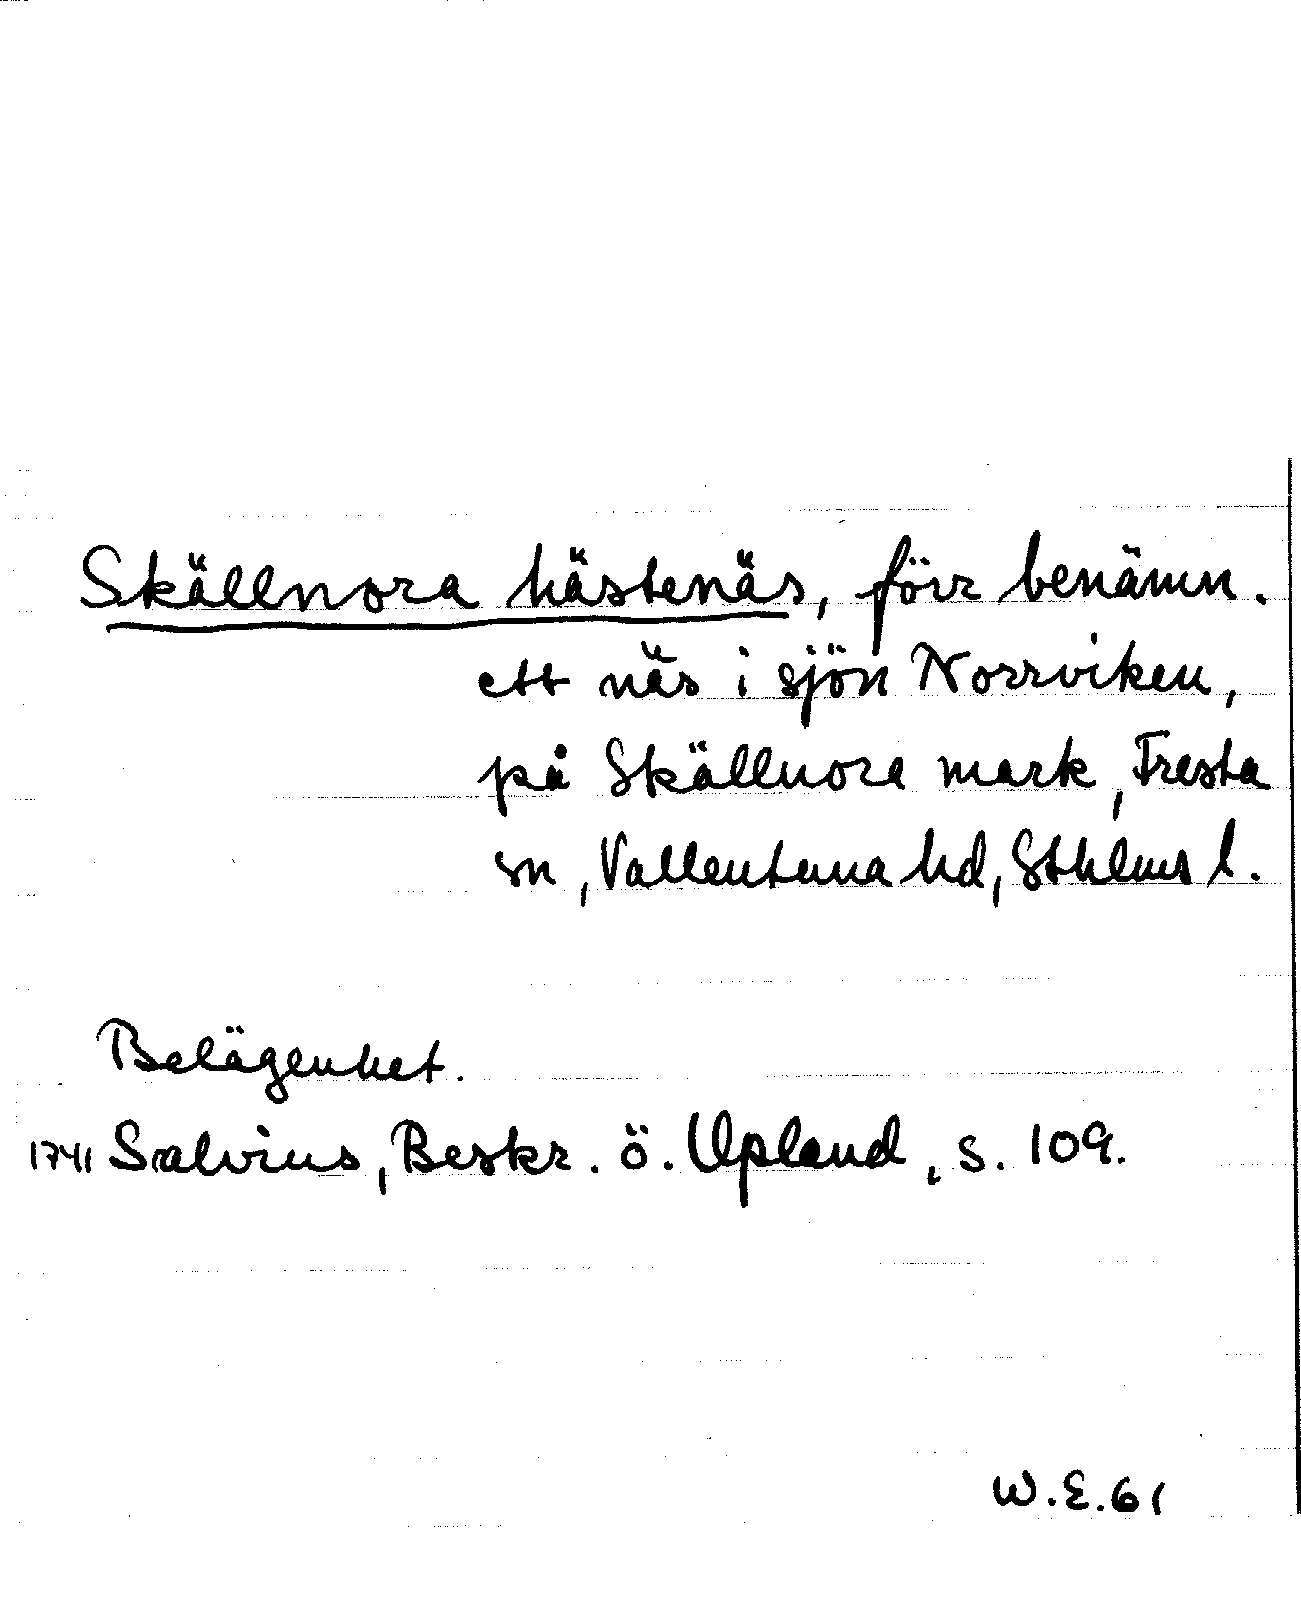 Skällnora hästenäs, förr benämn.
ett näs i sjön Norrviken,
på Skällnora mark, Fresta
sn, Vallentuna hd, Sthlms l.
Belägenhet.
1741 Salvius, Beskr. ö. Upland, s. 109.
W.E.61